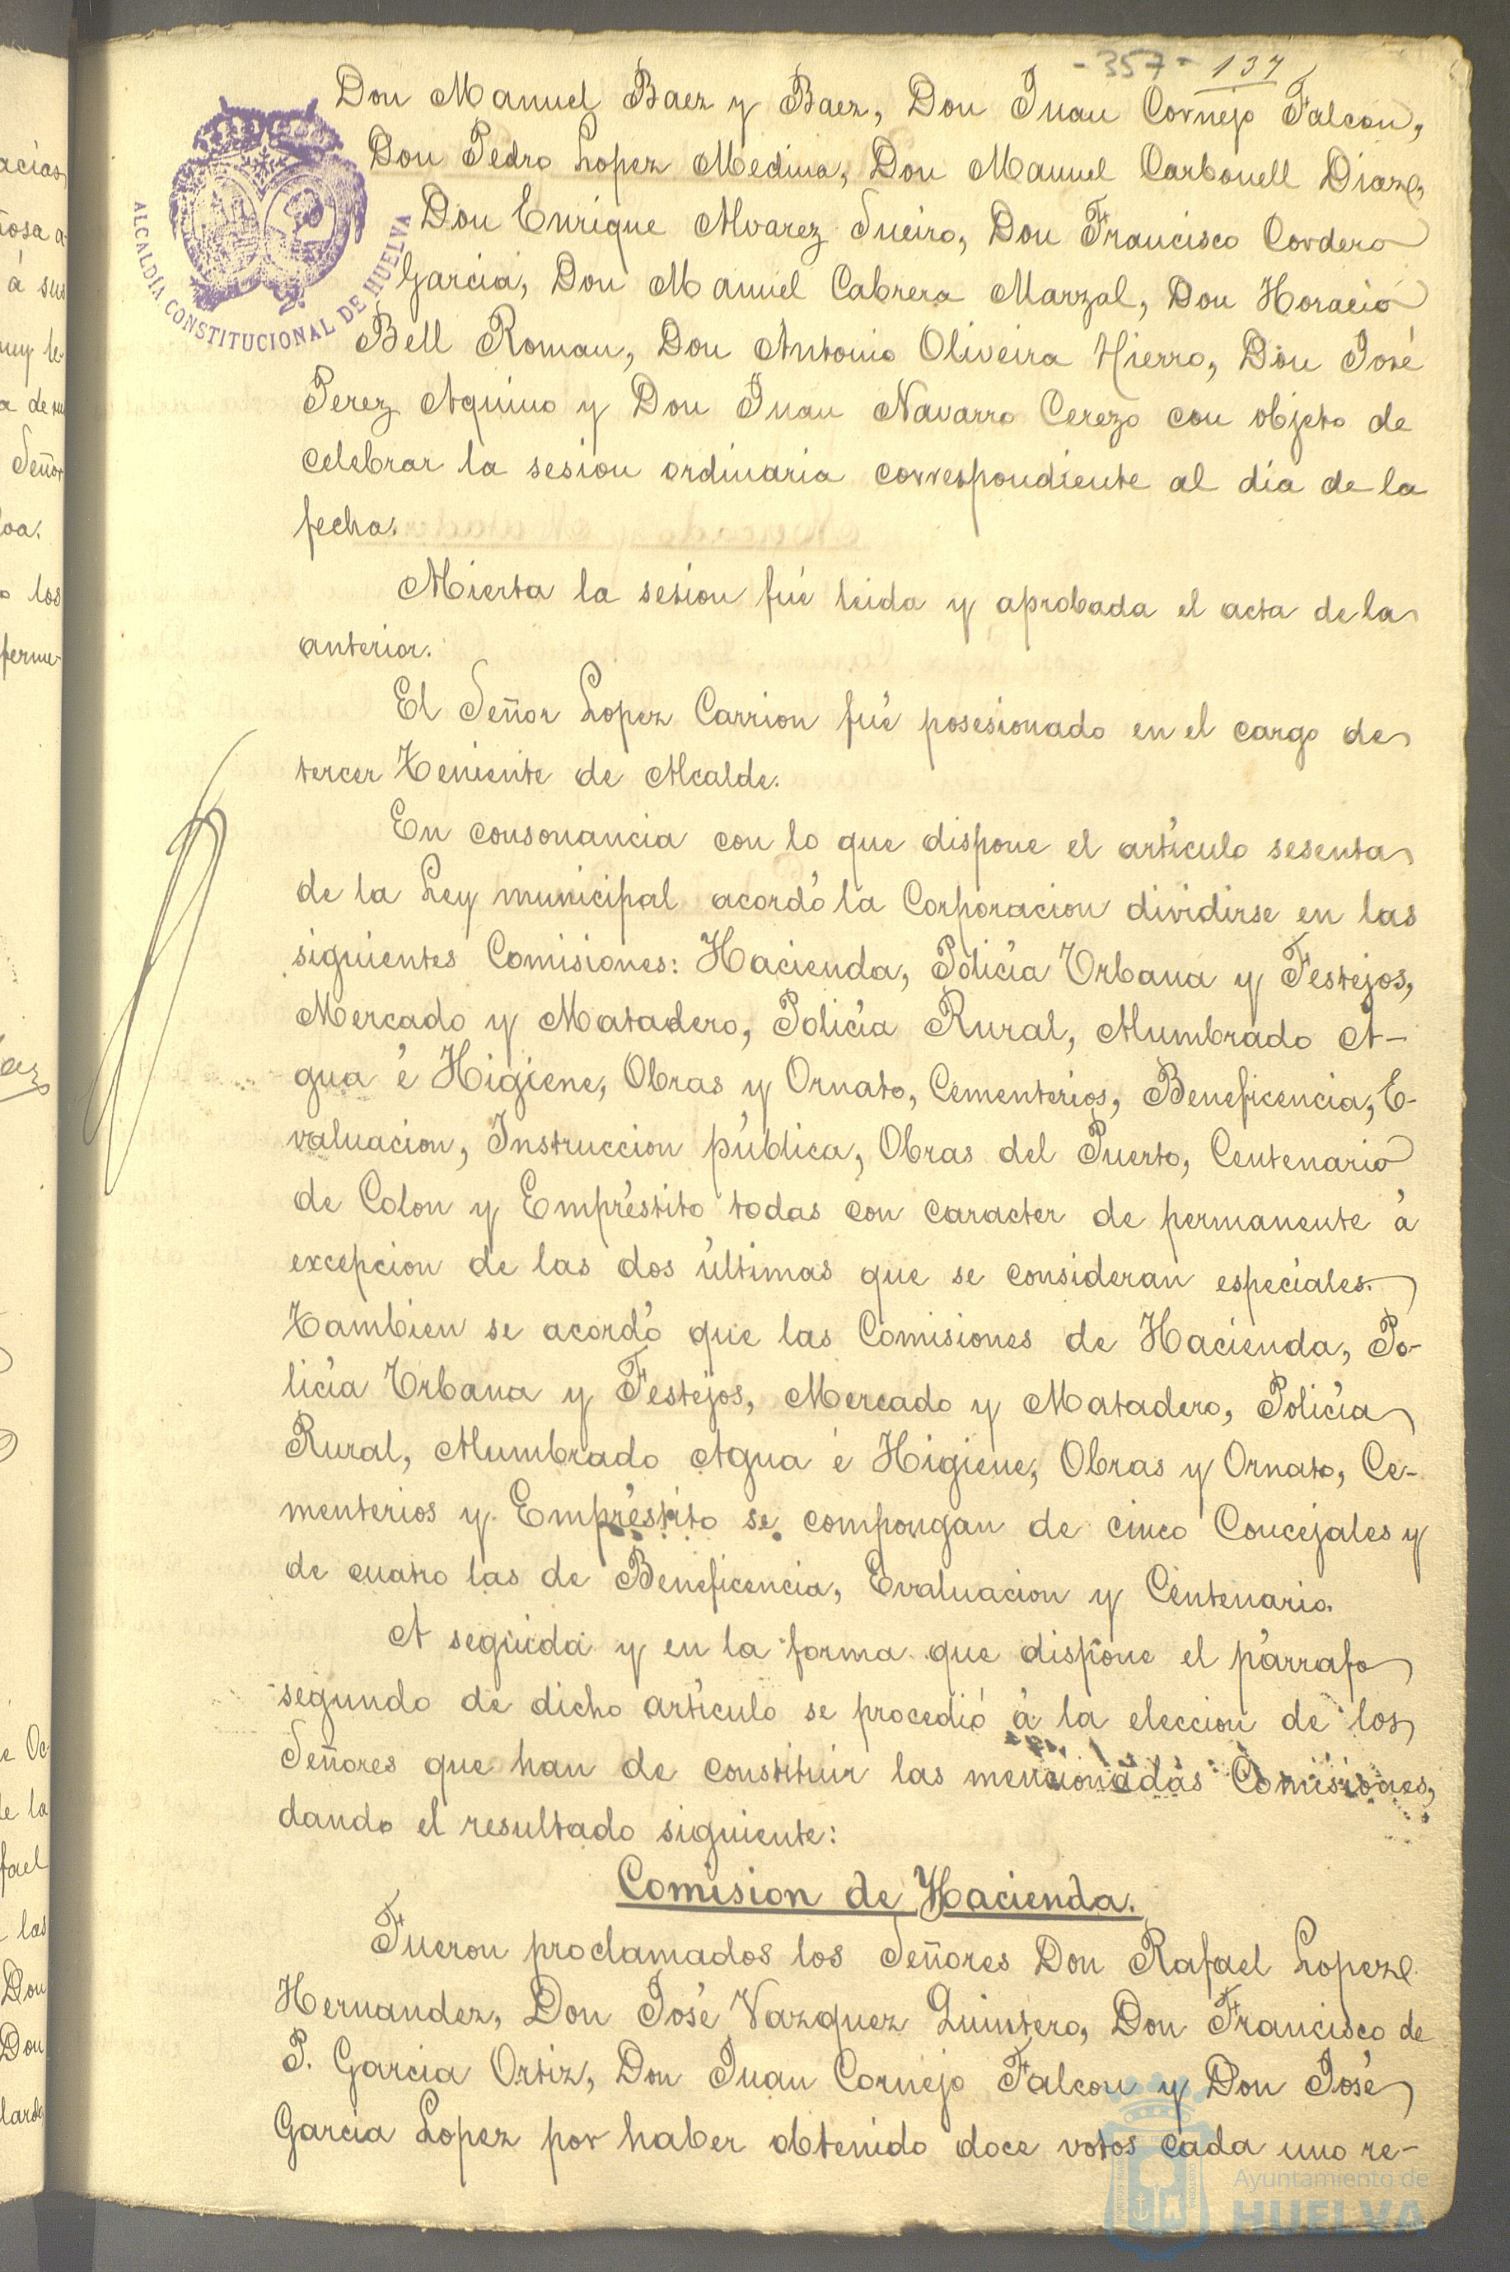 - 357 - 137
Don Manuel Baez y Baez, Don Juan Cornejo Falcon,
Don Pedro Lopez Medina, Don Manuel Carbonell Diaz,
Don Enrique Alvarez Sueiro, Don Francisco Cordero
Garcia, Don Manuel Cabrera Marzal, Don Horacio
Bell Roman, Don Antonio Oliveira Hierro, Don José
Perez Aquino y Don Juan Navarro Cerezo con objeto de
celebrar la sesion ordinaria correspondiente al dia de la
fecha.
ALCALDÍA CONSTITUCIONAL DE HUELVA
Abierta la sesion fué leida y aprobada el acta de la
anterior.
El Señor Lopez Carrion fué posesionado en el cargo de
tercer Teniente de Alcalde.
En consonancia con lo que dispone el artículo sesenta
de la Ley municipal acordó la Corporacion dividirse en las
siguientes Comisiones: Hacienda, Policía Urbana y Festejos,
Mercado y Matadero, Policía Rural, Alumbrado A-
gua é Higiene, Obras y Ornato, Cementerios, Beneficencia, E-
valuacion, Instruccion pública, Obras del Puerto, Centenario
de Colon y Empréstito todas con caracter de permanente á
excepcion de las dos últimas que se consideran especiales.
Tambien se acordó que las Comisiones de Hacienda, Po-
licía Urbana y Festejos, Mercado y Matadero, Policía
Rural, Alumbrado Agua é Higiene, Obras y Ornato, Ce-
menterios y Empréstito se compongan de cinco Concejales y
de cuatro las de Beneficencia, Evaluacion y Centenario.
A seguida y en la forma que dispone el párrafo
segundo de dicho artículo se procedió á la eleccion de los
Señores que han de constituir las mencionadas Comisiones,
dando el resultado siguiente:
Comision de Hacienda.
Fueron proclamados los Señores Don Rafael Lopez
Hernandez, Don José Vazquez Quintero, Don Francisco de
P. Garcia Ortiz, Don Juan Cornejo Falcon y Don José
Garcia Lopez por haber obtenido doce votos cada uno re-
Ayuntamiento de
HUELVA